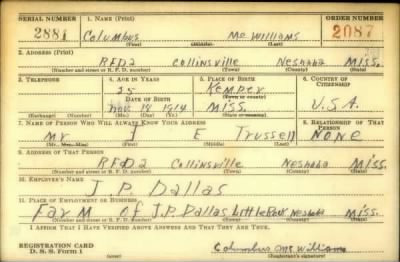 SERIAL NUMBER 1. NAME (Print) ORDER NUMBER
2881 Columbus Mc Williams 2087
(First) (Middle) (Last)
2. ADDRESS (Print)
RFD2 Collinsville Neshoba Miss.
(Number and street or R. F. D. number) (Town) (County) (State)
3. TELEPHONE 4. AGE IN YEARS 5. PLACE OF BIRTH 6. COUNTRY OF CITIZENSHIP
25 Kemper
DATE OF BIRTH (Town or county)
Nov 14 1914 Miss. U.S.A.
(Exchange) (Number) (Mo.) (Day) (Yr.) (State or country)
7. NAME OF PERSON WHO WILL ALWAYS KNOW YOUR ADDRESS 8. RELATIONSHIP OF THAT PERSON
Mr J E Trussell NONE
(Mr., Mrs., Miss) (First) (Middle) (Last)
9. ADDRESS OF THAT PERSON
RFD2 Collinsville Neshoba Miss.
(Number and street or R. F. D. number) (Town) (County) (State)
10. EMPLOYER'S NAME
J. P. Dallas
11. PLACE OF EMPLOYMENT OR BUSINESS
Farm of J.P. Dallas Little Rock Neshoba Miss.
(Number and street or R. F. D. number) (Town) (County) (State)
I AFFIRM THAT I HAVE VERIFIED ABOVE ANSWERS AND THAT THEY ARE TRUE.
REGISTRATION CARD
D. S. S. Form 1 Columbus Mc Williams
(Registrant's signature)